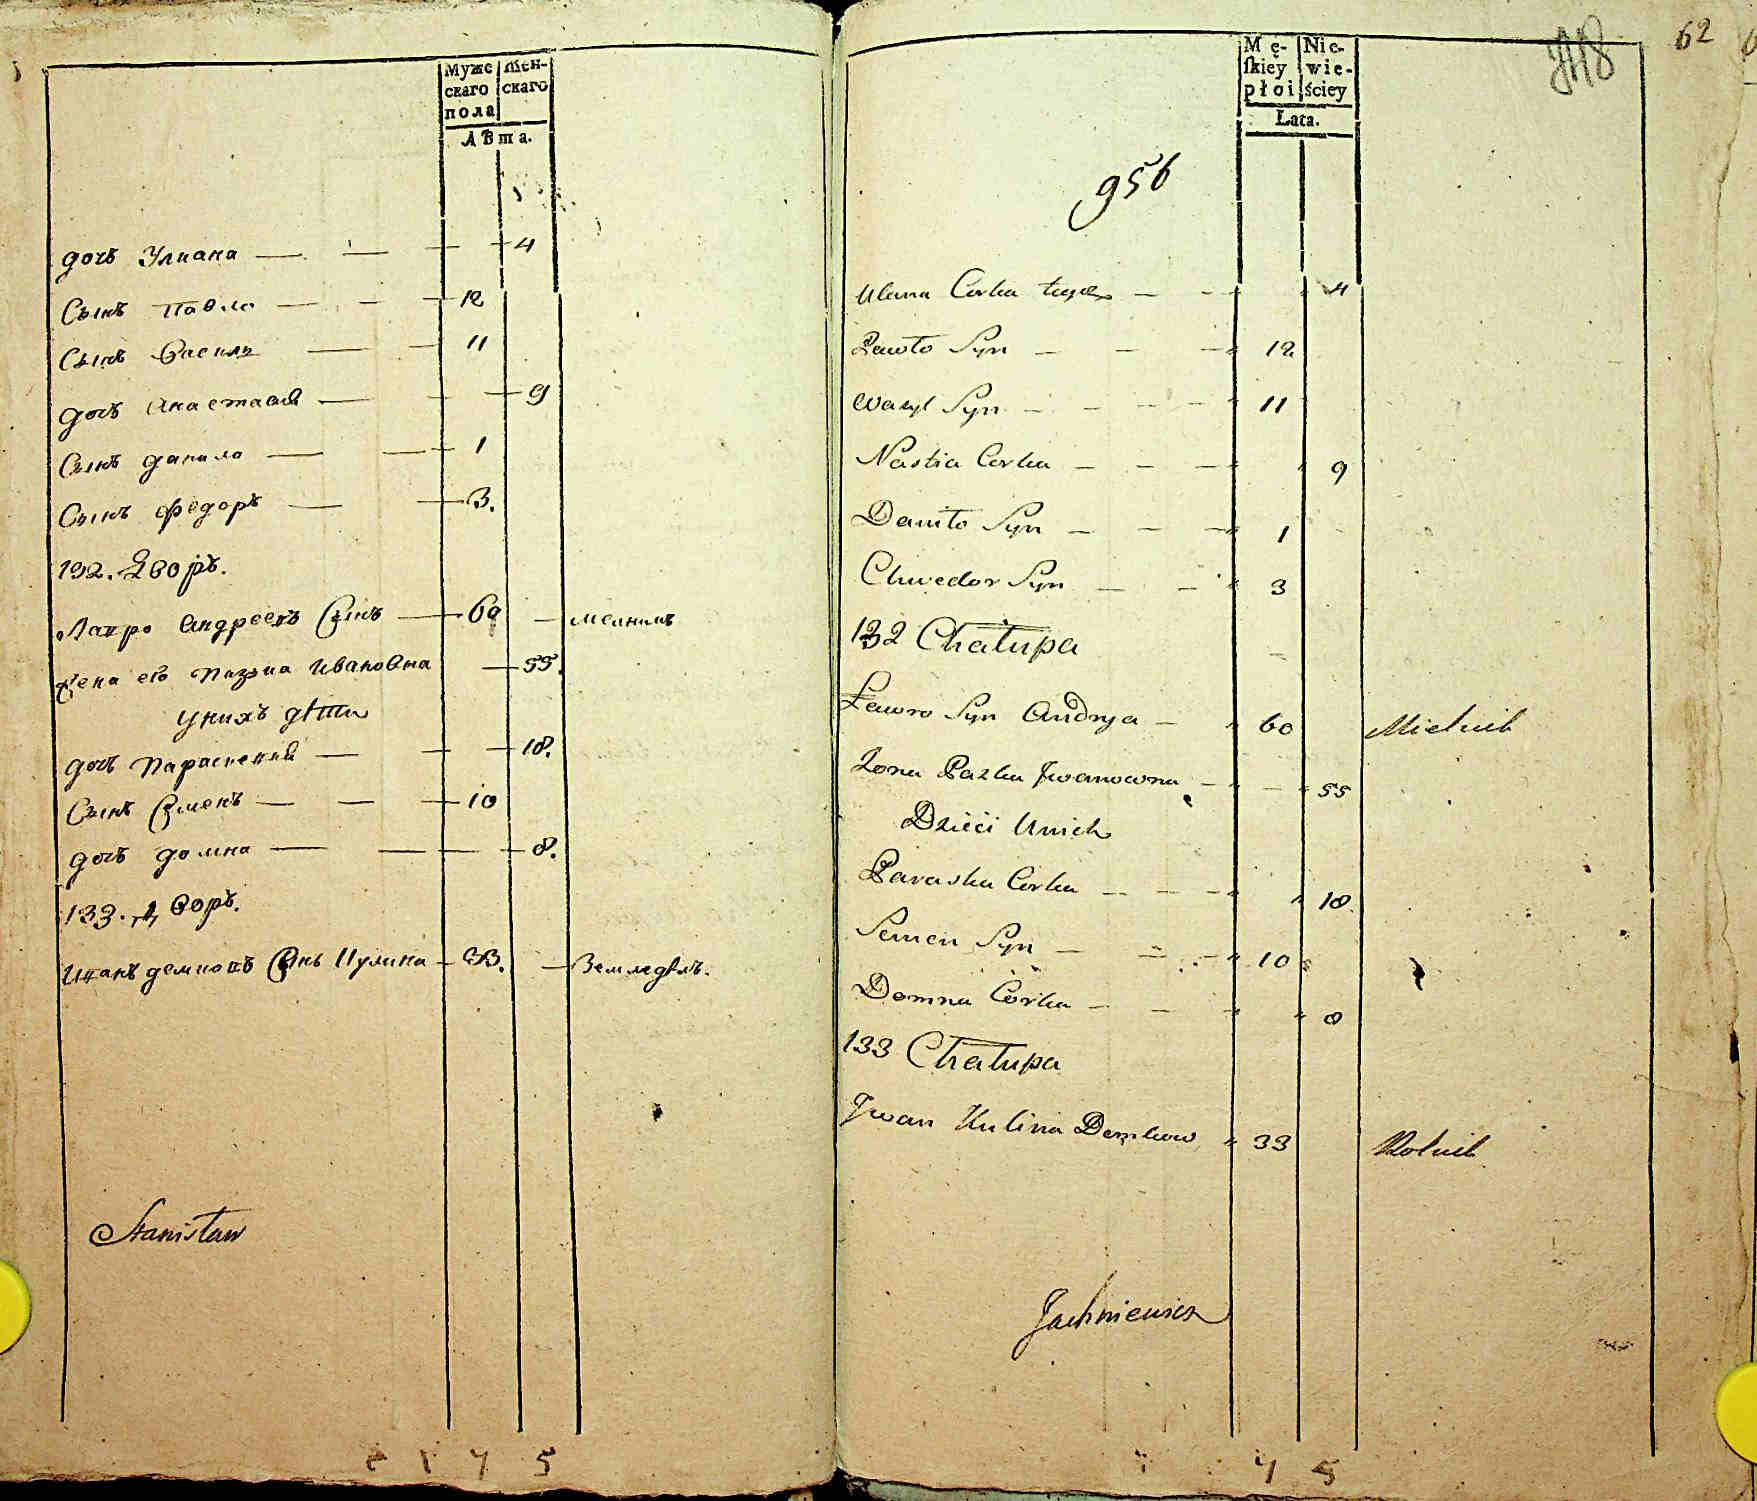 Муже Жен-
скаго скаго
пола
Лѣта.
дочь Улиана — — — — 4
Сынъ Павло — — — 12
Сынъ Василь — — 11
дочь Анастасия — — — 9
Сынъ данило — — 1
Сынъ федоръ — — 3.
132. Дворъ.
Лавро Андреевъ Сынъ — 60 — мелникъ
Жена его Пазька Ивановна — 55.
у нихъ дѣти
дочь Параскевия — — — 18.
Сынъ Семенъ — — — 10
дочь домна — — — — 8.
133. Дворъ.
Иванъ демковъ Сынъ Кулина — 33. — Земледѣлъ.
Stanisław
1 4 5
62
Mę- Nie-
skiey wie-
płoi ściey
Lata.
956
Ulana Corka — — 4
Pawło Syn — — — 12
Wasyl Syn — — — — 11
Nastia Corka — — — 9
Daniło Syn — — — 1
Chwedor Syn — — 3
132 Chałupa
Ławro Syn Andryja — 60 Mielnik
Żona Pazka Jwanowna — — 55
Dzieci Unich
Paraska Corka — — — 18
Semen Syn — — — 10
Domna Corka — — — 8
133 Chałupa
Jwan Kulina Demkow 33 Rolnik
Jachniewicz
4 5